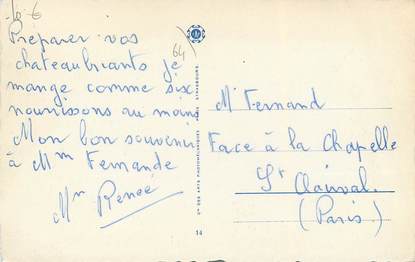 10 €
64
Preparer vos
chateaubriants je
mange comme six
nourrissons au moins
Mon bon souvenir
à Mm Fernande
Mm Renée
Mr Fernand
Face à la Chapelle
St
(Paris)
Cie DES ARTS PHOTOMÉCANIQUES
STRASBOURG
14